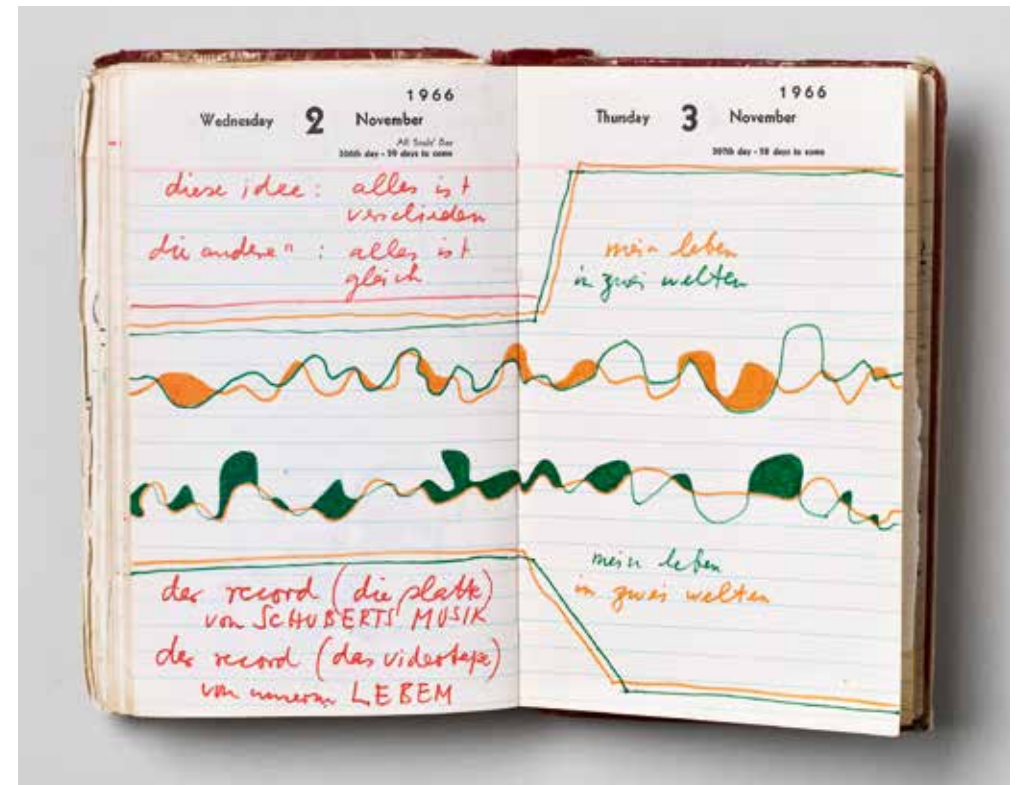 1966
Wednesday 2 November
All Souls' Day
306th day - 59 days to come
diese idee : alles ist
verschieden
die andere " : alles ist
gleich
der record (die platte)
von SCHUBERTS MUSIK
der record (das videotape)
von unserm LEBEM
1966
Thursday 3 November
307th day - 58 days to come
mein leben
in zwei welten
mein leben
in zwei welten